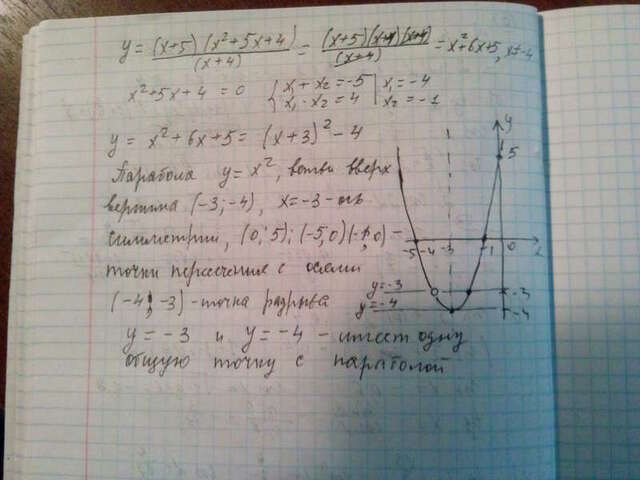 y = (x+5)(x²+5x+4)/(x+4) = (x+5)(x+1)(x+4)/(x+4) = x²+6x+5, x≠-4
x²+5x+4=0 { x₁+x₂=-5 x₁·x₂=4 | x₁=-4 x₂=-1
y = x²+6x+5 = (x+3)²-4
Парабола y=x², ветви вверх
вершина (-3;-4), x=-3-ось
симметрии, (0;5); (-5;0)(-1;0) -
точки пересечения с осями
(-4;-3)-точка разрыва
y=-3 и y=-4 - имеет одну
общую точку с параболой
y
5
-5 -4 -3 -1 0
y=-3 -3
y=-4 -4